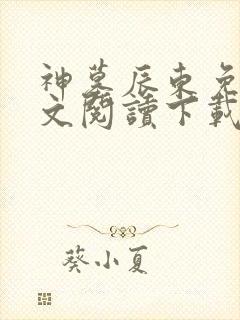 神墓辰東免
文閱讀下載
葵小夏